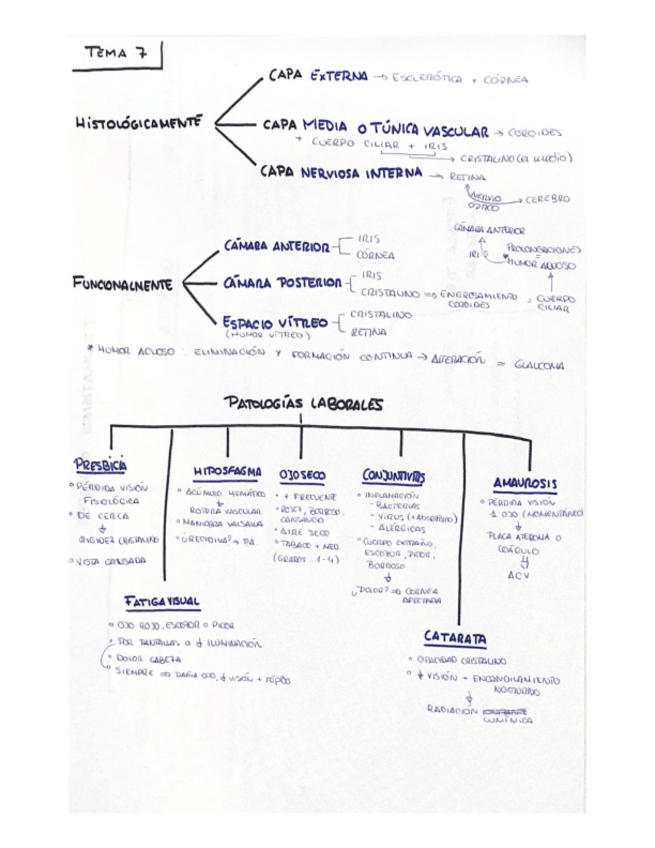 TEMA 7
HISTOLÓGICAMENTE
CAPA EXTERNA → ESCLERÓTICA + CÓRNEA
CAPA MEDIA O TÚNICA VASCULAR → COROIDES
+ CUERPO CILIAR + IRIS
→ CRISTALINO (en medio)
CAPA NERVIOSA INTERNA → RETINA
NERVIO ÓPTICO → CEREBRO
FUNCIONALMENTE
CÁMARA ANTERIOR
IRIS
CÓRNEA
CÁMARA POSTERIOR
IRIS
CRISTALINO ⇒ ENGROSAMIENTO COROIDES = CUERPO CILIAR
CÁMARA ANTERIOR
IRIS
PROLONGACIONES
* HUMOR ACUOSO
ESPACIO VÍTREO
(HUMOR VÍTREO)
CRISTALINO
RETINA
* HUMOR ACUOSO: ELIMINACIÓN Y FORMACIÓN CONTINUA → ALTERACIÓN = GLAUCOMA
PATOLOGÍAS LABORALES
PRESBICIA
° PÉRDIDA VISIÓN
FISIOLÓGICA
° DE CERCA
↓
RIGIDEZ CRISTALINO
° VISTA CANSADA
HIPOSFAGMA
° ACÚMULO HEMÁTICO
↓
ROTURA VASCULAR
° MANIOBRA VALSALVA
° ¿RECIDIVA? → TA
OJO SECO
° + FRECUENTE
° ROJEZ, BORROSO,
CANSANCIO
° AIRE SECO
° TABACO + MED.
(GRADOS: 1-4)
CONJUNTIVITIS
° INFLAMACIÓN
- BACTERIAS
- VIRUS (+ ABSENTISMO)
- ALÉRGICAS
° CUERPO EXTRAÑO,
ESCOZOR, PICOR,
BORROSO
↓
¿DOLOR? ⇒ CÓRNEA
AFECTADA
AMAUROSIS
° PÉRDIDA VISIÓN
1 OJO (MOMENTÁNEO)
↓
PLACA ATEROMA O
COÁGULO
↓
ACV
FATIGA VISUAL
° OJO ROJO, ESCOZOR O PICOR
° POR PANTALLAS O ↓ ILUMINACIÓN
° DOLOR CABEZA
° SIEMPRE ⇒ DAÑA OJO, ↓ VISIÓN + RÁPIDO
CATARATA
° OPACIDAD CRISTALINO
° ↓ VISIÓN + ENCANDILAMIENTO
NOCTURNO
↓
RADIACIÓN
LUMÍNICA